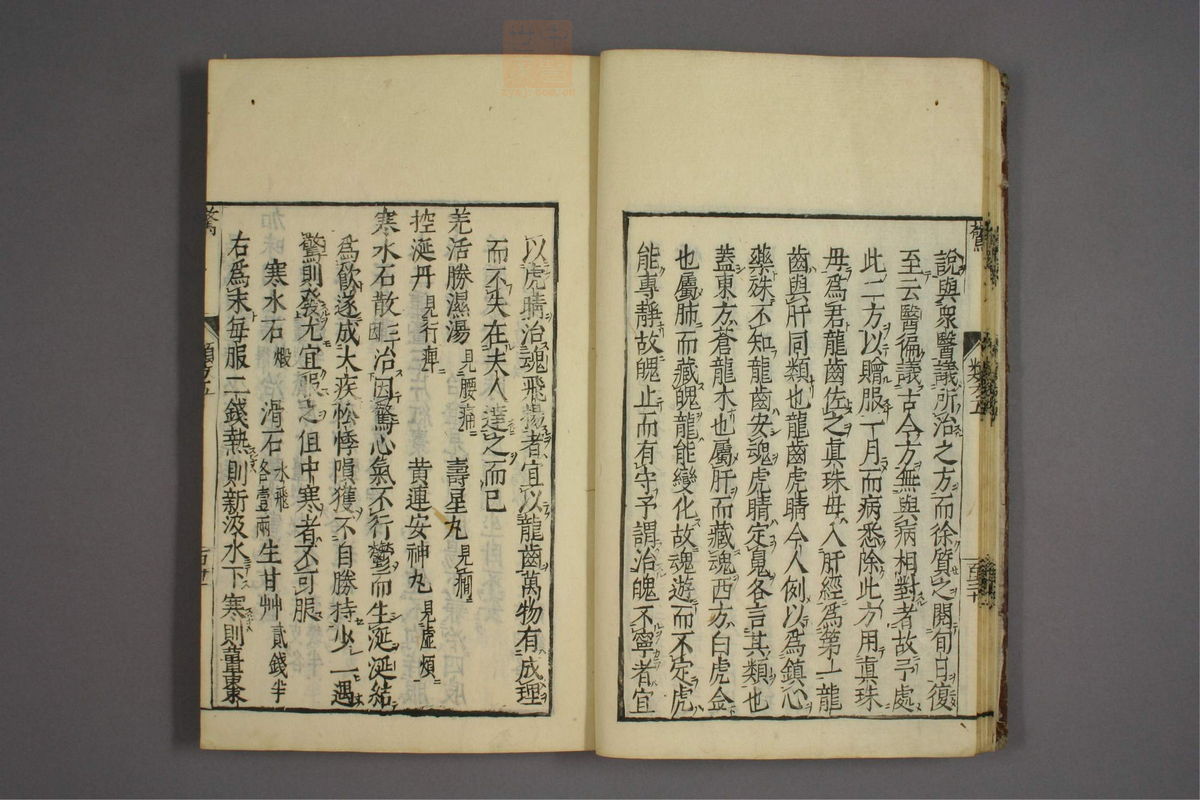 說與衆醫議所治之方而徐質之閱旬日復
至云醫徧議古今方無與病相對者故予處
此二方以贈服一月而病悉除此方用眞珠
母爲君龍齒佐之眞珠母入肝經爲第一龍
齒與肝同類也龍齒虎睛今人例以爲鎮心
藥殊不知龍齒安魂虎睛定魄各言其類也
蓋東方蒼龍木也屬肝而藏魂西方白虎金
也屬肺而藏魄龍能變化故魂遊而不定虎
能專靜故魄止而有守予謂治魄不寧者宜
以虎睛治魂飛揚者宜以龍齒萬物有成理
而不失在夫人達之而已
羌活勝濕湯 見腰痛 壽星丸 見癇
控涎丹 見行痺 黄連安神丸 見虚煩
寒水石散 三因 治因驚心氣不行鬱而生涎涎結
爲飲遂成大疾忪悸隕獲不自勝持少一遇
驚則發尤宜服之但中寒者不可服
寒水石 煅 滑石 水飛各壹兩 生甘艸 貳錢半
右爲末每服二錢熱則新汲水下寒則薑棗